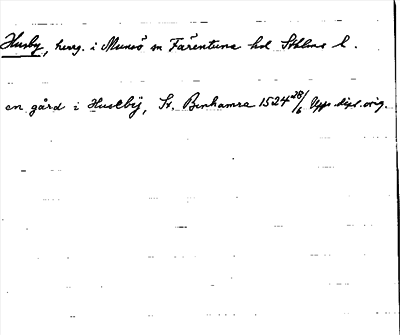 Husby, herrg. i Munsö sn Färentuna hd Sthlms l.
en gård i Husebÿ, St. Benhamra 1524 28/6 Upps. dipl. orig.